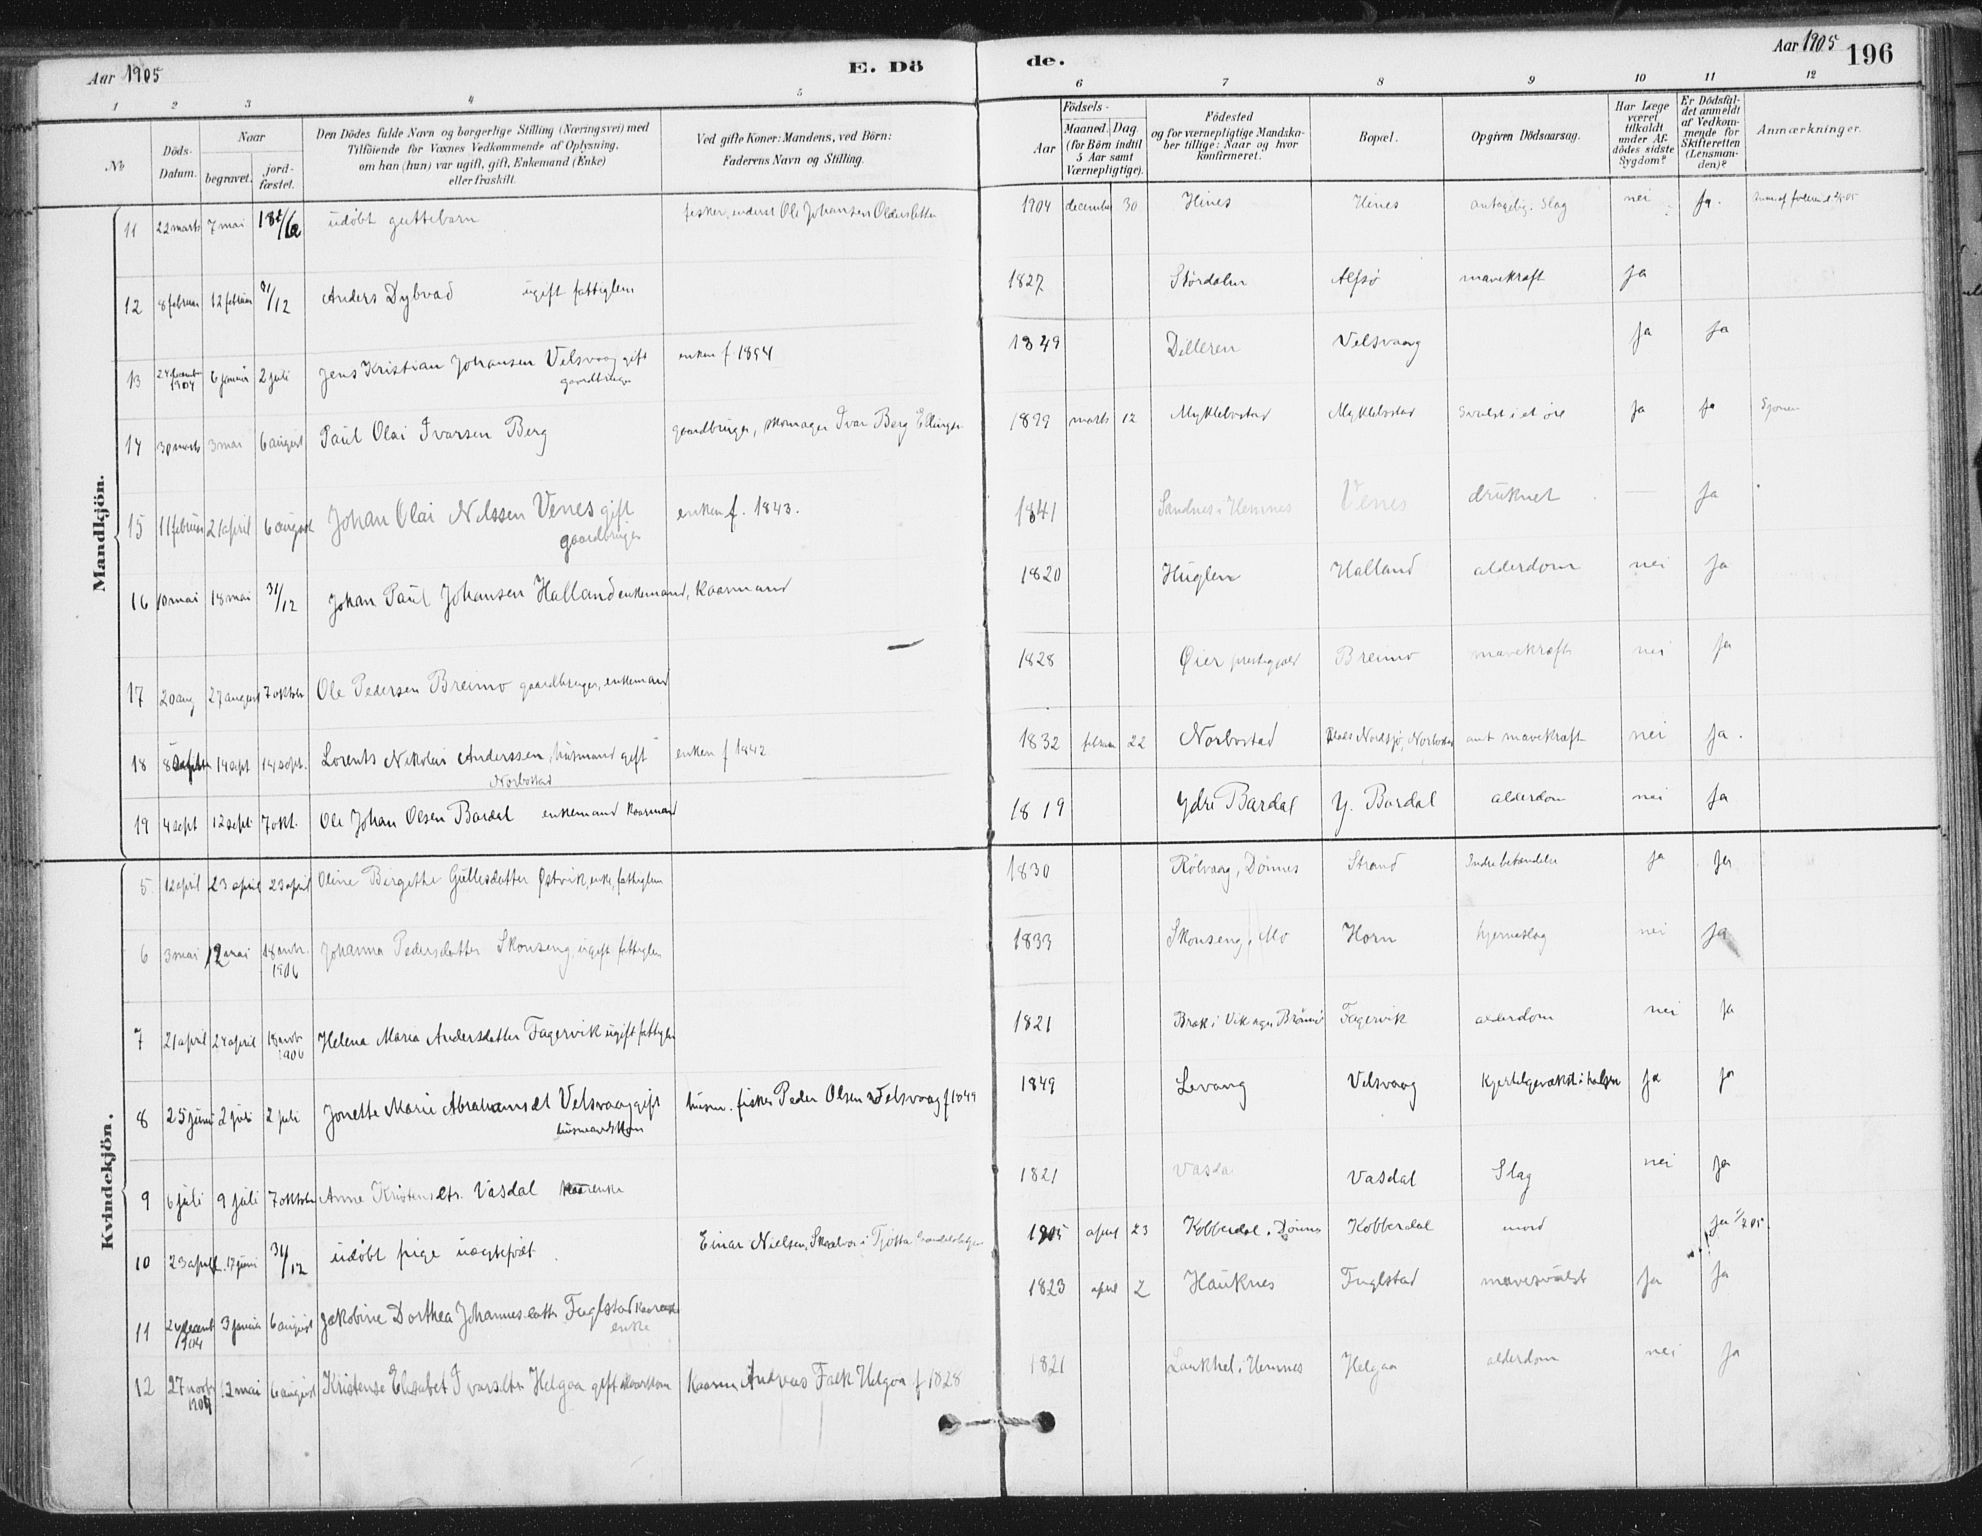 Aar 1905
E. Dö
de.
Aar 1905
196
1 2 3 4 5 6 7 8 9 10 11 12
No
Döds-
Datum.
Naar
begravet.
jord-
fæstet.
Den Dödes fulde Navn og borgerlige Stilling (Næringsvei) med
Tilföiende for Voxnes Vedkommende af Oplysning,
om han (hun) var ugift, gift, Enkemand (Enke)
eller fraskilt.
Ved gifte Koner: Mandens, ved Börn:
Faderens Navn og Stilling.
Födsels-
Aar
Maaned. Dag.
(for Börn indtil
5 Aar samt
Værnepligtige).
Födested
og for værnepligtige Mandska-
ber tillige: Naar og hvor
konfirmeret.
Bopæl.
Opgiven Dödsaarsag.
Har Læge
været
tilkaldt
under Af-
dödes sidste
Sygdom?
Er Dödsfal-
det anmeldt
af Vedkom-
mende for
Skifteretten
(Lensman-
den)?
Anmærkninger.
Mandkjön.
11 22 marts 7 mai udöbt guttebarn fisker, Ole Johansen 1904 december 30 Hines Hines antagelig. Slag nei ja.
12 8 februar 12 februar 31/12 Anders Dybvad ugift fattiglem 1827 Stördalen Alfsö mavekræft ja
13 1904 6 januar 2 juli Jens Kristian Johansen Velsvaag gift enken f. 1854 1849 Dilleren Velsvaag ja ja
gaardbruger
14 30 marts 3 mai 6 august Paul Olai Ivarsen Berg gaardbruger, skomager Ivar Berg 1899 marts 12 Myklebostad Myklebostad Svulst i et öre ja ja Sjonen
15 11 februar 21 april 6 august Johan Olai Nilssen Venes gift enken f. 1843. 1841 Sandnes i Hemnes Venes druknet — ja
gaardbruger
16 10 mai 18 mai 31/12 Johan Paul Johansen Halland enkemand, kaarmand 1820 Huglen Halland alderdom nei ja
17 20 aug 27 august 7 oktober Ole Pedersen Breimo gaardbruger, enkemand 1828 Øier prestegjeld Breimo mavekræft nei ja
18 8 sept 14 sept 14 sept. Lorents Nikolai Anderssen, husmand gift enken f 1842 1832 februar 22 Norbostad Nordsjö, Norbostad ant mavekræft nei ja.
Norbostad
19 4 sept 12 sept 7 okt. Ole Johan Olsen Bardal enkemand kaarmand 1819 Ydre Bardal Y. Bardal alderdom nei ja
Kvindekjön.
5 12 april 23 april 23 april Oline Bergethe Gullesdatter Østvik, enke, fattiglem 1830 Rölvaag, Dönnes Strand Indre betændelse ja ja
6 3 mai 12 mai 18 novbr. 1906 Johanna Pedersdatter Skonseng, ugift fattiglem 1833 Skonseng, Mo Horn hjerneslag nei ja
7 21 april 24 april 18 novbr 1906 Helena Maria Andersdatter Fagervik ugift fattiglem 1821 Vik Brönnö Fagervik alderdom nei ja
8 25 juni 2 juli 2 juli Jonette Marie Abrahamsdt Velsvaag gift husm. fisker Peder Olsen Velsvaag f 1849 1849 Levang Velsvaag Kjertelgevækst i halsen ja ja
husmandskon
9 6 juli 9 juli 7 oktober Anne Kristensdtr. Vasdal kaarenke 1821 Vasda Vasdal Slag nei ja
10 23 april 17 juni 31/12 udöbt pige uægtefödt Einar Nielsen, i Tjötta 1905 april 23 Kobberdal i Dönnes Kobberdal mord ja
11 1904 3 januar 6 august Jakobine Dorthea Johannesdatter Fuglstad 1823 april 2 Hauknes Fuglstad mavesvulst ja ja
enke
12 27 novbr 1904 12 mai 6 august Kristense Elisabet Ivarsdtr Helgaa gift kaarkone kaarm Andreas Falk Helgaa f 1828 1821 i Hemnes Helgaa alderdom nei ja